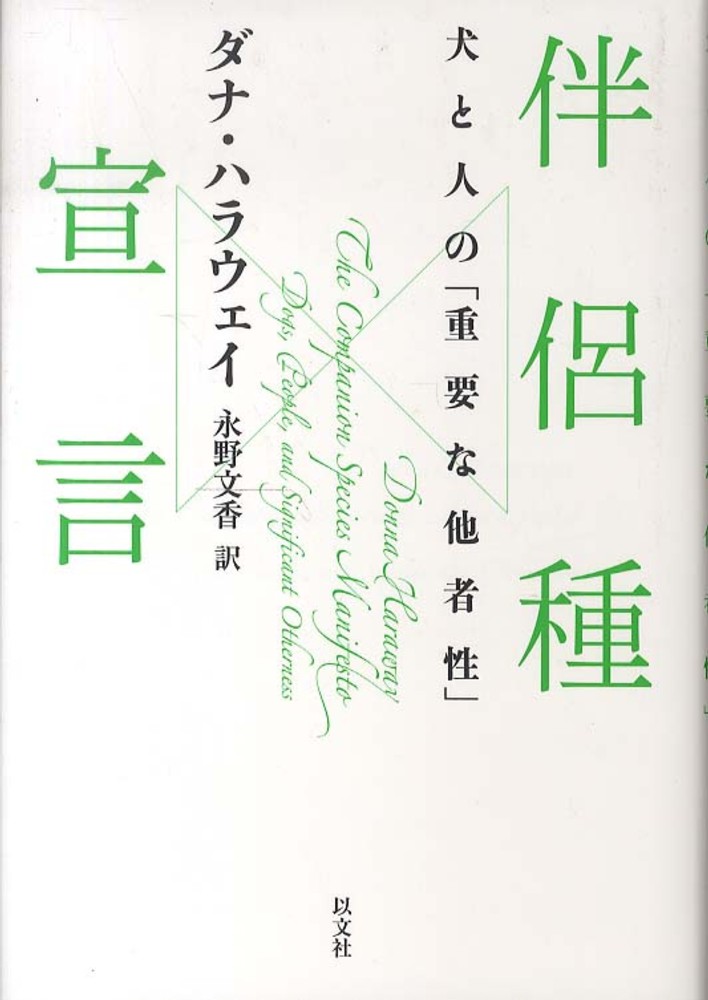 伴侶種
宣言
犬と人の「重要な他者性」
Donna Haraway
The Companion Species Manifesto
Dogs, People, and Significant Otherness
ダナ・ハラウェイ 永野文香 訳
以文社